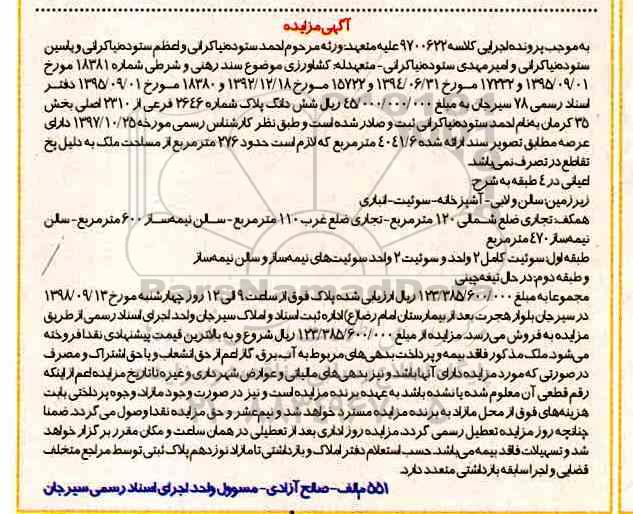 آگهی مزایده
به موجب پرونده اجرایی کلاسه ۹۷۰۰۶۲۲ علیه متعهد: ورثه مرحوم احمد ستوده‌نیاکرانی و اعظم ستوده‌نیاکرانی و یاسین
ستوده‌نیاکرانی و امیرمهدی ستوده‌نیاکرانی- متعهدله: کشاورزی موضوع سند رهنی و شرطی شماره ۱۸۳۸۱ مورخ
۱۳۹۵/۰۹/۰۱ و ۱۷۳۳۲ مورخ ۱۳۹۴/۰۶/۳۱ و ۱۵۷۲۲ مورخ ۱۳۹۲/۱۲/۱۸ و ۱۸۳۸۰ مورخ ۱۳۹۵/۰۹/۰۱ دفتر
اسناد رسمی ۷۸ سیرجان به مبلغ ۴۵/۰۰۰/۰۰۰/۰۰۰ ریال شش دانگ پلاک شماره ۲۶۴۶ فرعی از ۲۳۱۰ اصلی بخش
۳۵ کرمان به‌نام احمد ستوده‌نیاکرانی ثبت و صادر شده است و طبق نظر کارشناس رسمی مورخه ۱۳۹۷/۱۰/۲۵ دارای
عرصه مطابق تصویر سند ارائه شده ۴۰۴۱/۶ مترمربع که لازم است حدود ۲۷۶ مترمربع از مساحت ملک به دلیل پخ
تقاطع در تصرف نمی‌باشد.
اعیانی در ۴ طبقه به شرح:
زیرزمین: سالن و لابی- آشپزخانه- سوئیت- انباری
همکف: تجاری ضلع شمالی ۱۲۰ مترمربع- تجاری ضلع غرب ۱۱۰ مترمربع- سالن نیمه‌ساز ۶۰۰ مترمربع- سالن
نیمه‌ساز ۴۷۰ مترمربع
طبقه اول: سوئیت کامل ۲ واحد و سوئیت ۲ واحد سوئیت‌های نیمه‌ساز و سالن نیمه‌ساز
و طبقه دوم: در حال تیغه‌چینی
مجموعا به مبلغ ۱۲۳/۳۸۵/۶۰۰/۰۰۰ ریال ارزیابی شده پلاک فوق از ساعت ۹ الی ۱۲ روز چهارشنبه مورخ ۱۳۹۸/۰۹/۱۳
در سیرجان بلوار هجرت بعد از بیمارستان امام رضا(ع) اداره ثبت اسناد و املاک سیرجان واحد اجرای اسناد رسمی از طریق
مزایده به فروش می‌رسد. مزایده از مبلغ ۱۲۳/۳۸۵/۶۰۰/۰۰۰ ریال شروع و به بالاترین قیمت پیشنهادی نقدا فروخته
می‌شود. ملک مذکور فاقد بیمه و پرداخت بدهی‌های مربوط به آب، برق، گاز اعم از حق انشعاب و یا حق اشتراک و مصرف
در صورتی که مورد مزایده دارای آنها باشد و نیز بدهی‌های مالیاتی و عوارض شهرداری و غیره تا تاریخ مزایده اعم از اینکه
رقم قطعی آن معلوم شده یا نشده باشد به عهده برنده مزایده است و نیز در صورت وجود مازاد، وجوه پرداختی بابت
هزینه‌های فوق از محل مازاد به برنده مزایده مسترد خواهد شد و نیم عشر و حق مزایده نقدا وصول می‌گردد. ضمنا
چنانچه روز مزایده تعطیل رسمی گردد، مزایده روز اداری بعد از تعطیلی در همان ساعت و مکان مقرر برگزار خواهد
شد و تسهیلات فاقد بیمه می‌باشد. حسب استعلام دفتر املاک و بازداشتی تا مازاد نوزدهم پلاک ثبتی توسط مراجع مختلف
قضایی و اجرا سابقه بازداشتی متعدد دارد.
۵۵۱ م‌الف- صالح آزادی- مسوول واحد اجرای اسناد رسمی سیرجان